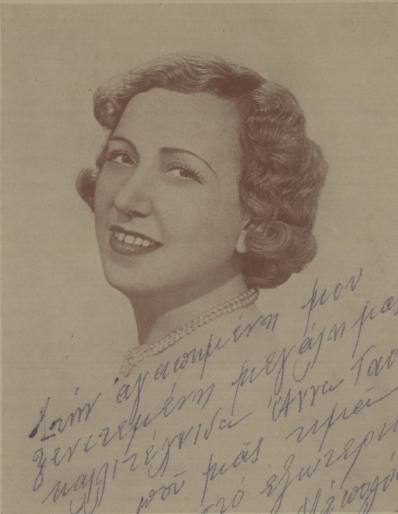 Στὴν ἀγαπημένη μου
ξενιτεμένη μεγάλη μας
καλλιτέχνιδα Ἄννα
ποῦ μᾶς τιμᾶ
στό ἐξωτερικ